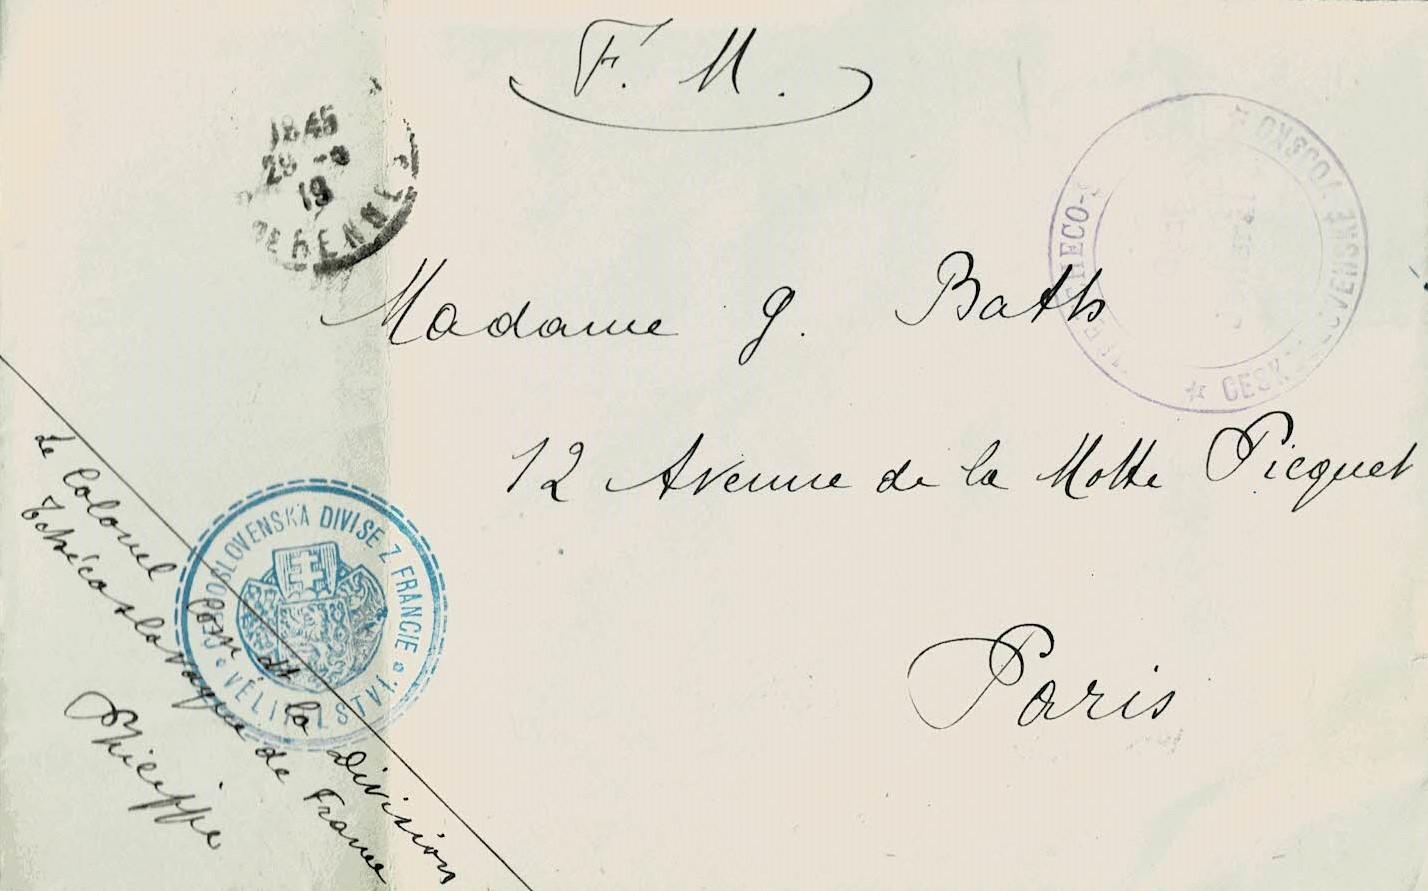 F. M.
1845
29 -
19
Madame G. Bath
12 Avenue de la Motte Picquet
Paris
HECO-S
★ ČESK OVENSKÉ VOJSKO ★
ČESKOSLOVENSKÁ DIVISE Z FRANCIE
VELITELSTVÍ
Le Colonel Comdt la Division
Tchécoslovaque de France
Philippe